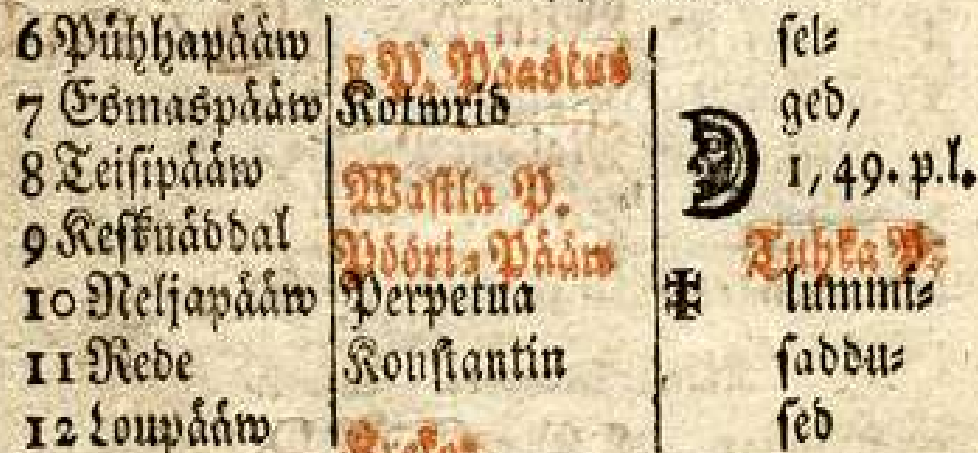 6 Pühhapååw 1 P. Paastus sel⸗
7 Esmaspååw Kotwrid ged,
8 Teisipååw Wastla P. 1, 49. p.l.
9 Kesknåddal Pööri⸗Pååw Tuhka P.
10 Neljapååw Perpetua lummi⸗
11 Rede Konstantin saddu⸗
12 Loupååw sed